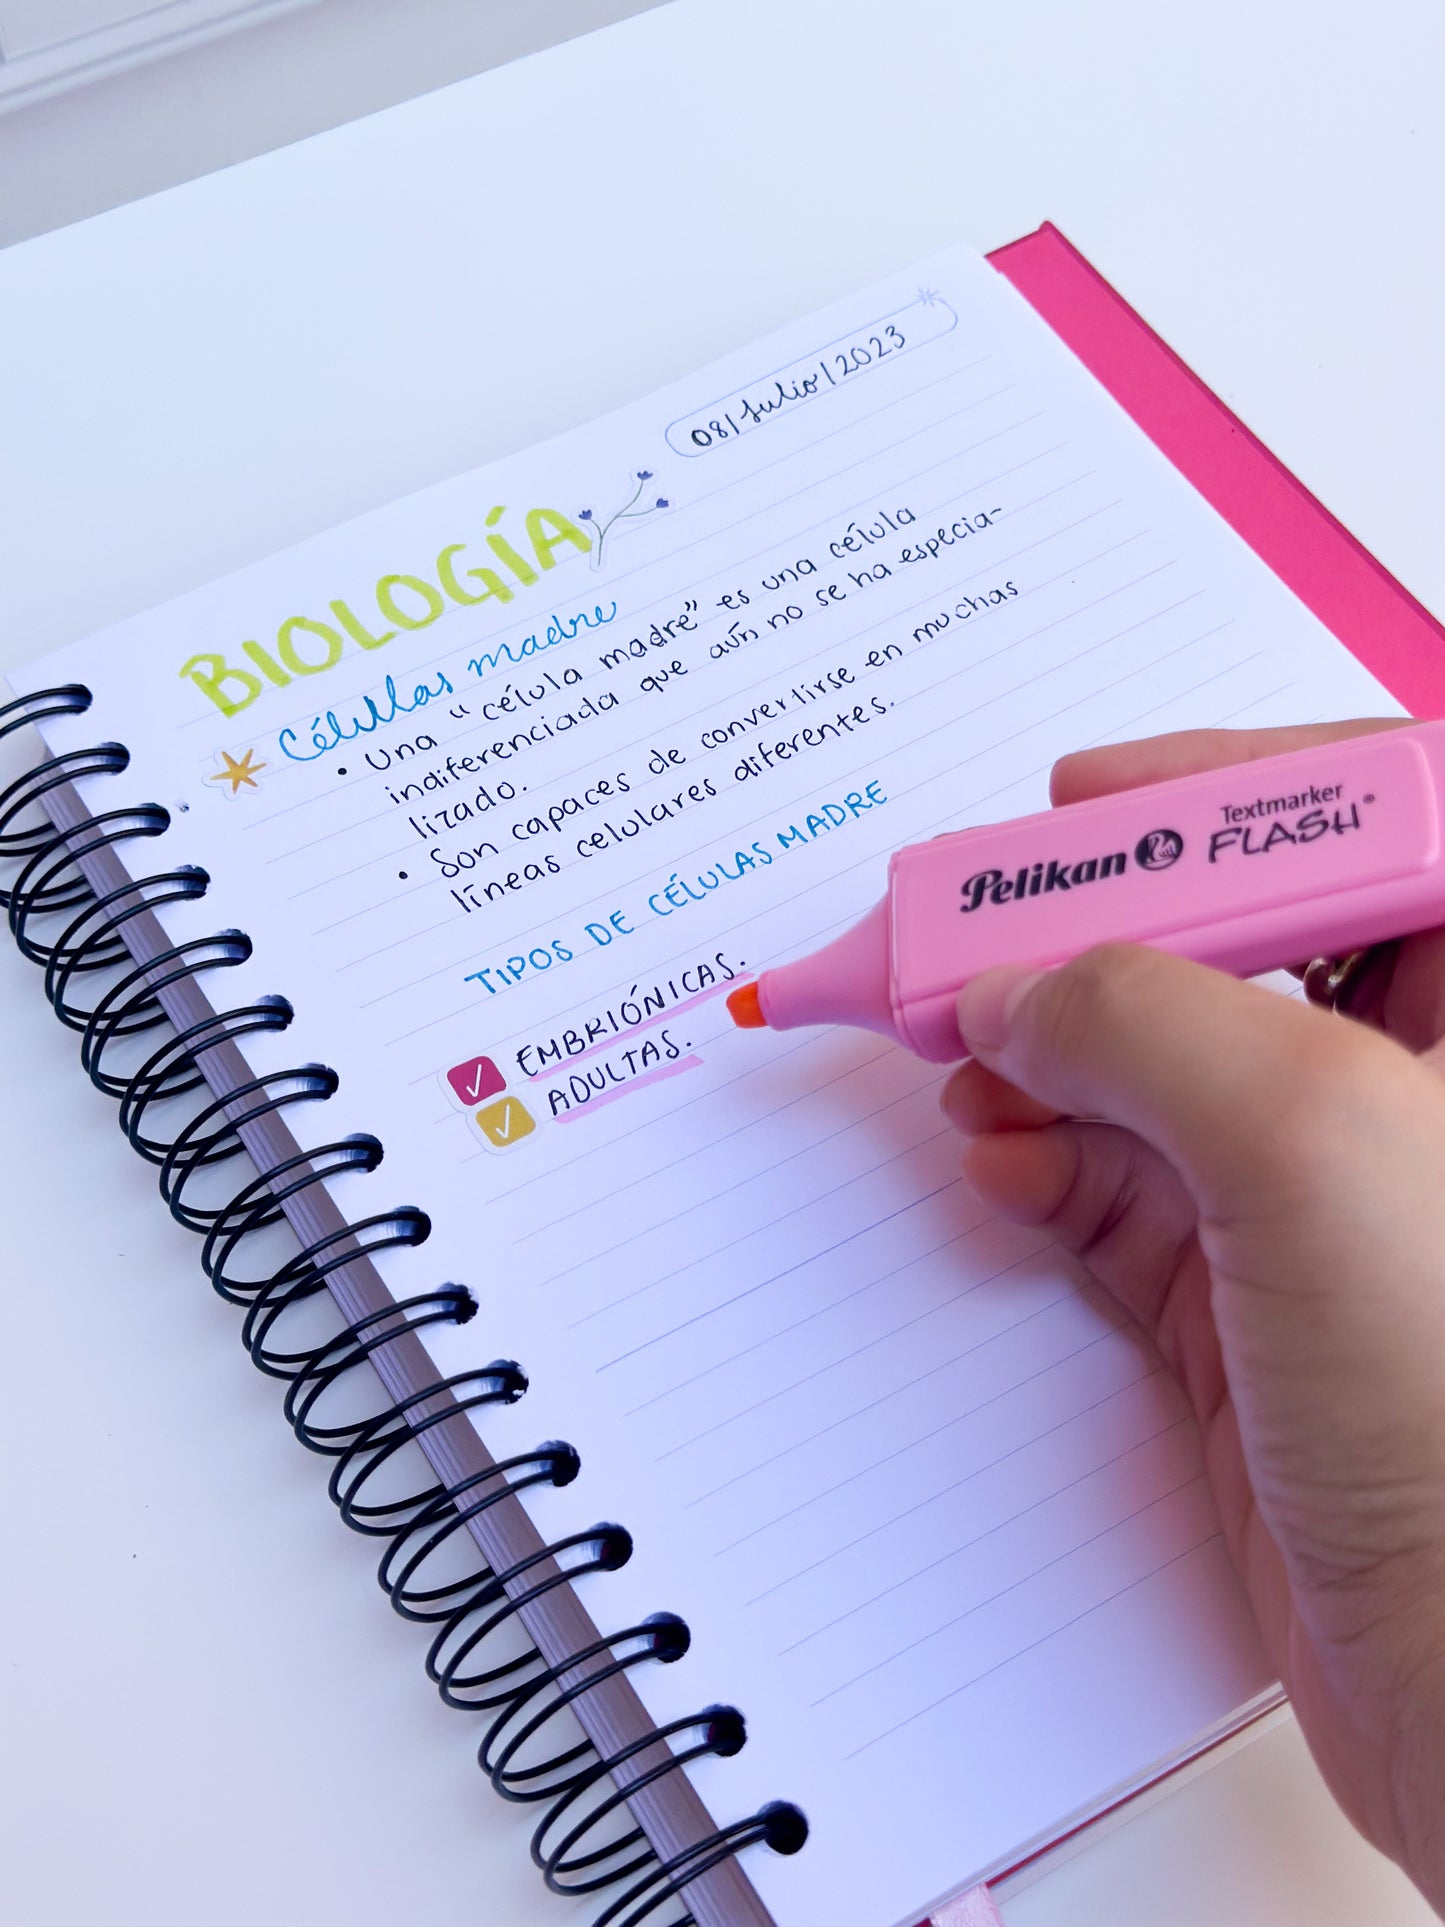 08/Julio/2023
BIOLOGÍA
Células madre
• Una "célula madre" es una célula
indiferenciada que aún no se ha especia-
lizado.
• Son capaces de convertirse en muchas
líneas celulares diferentes.
TIPOS DE CÉLULAS MADRE
EMBRIÓNICAS.
ADULTAS.
Pelikan Textmarker
FLASH®